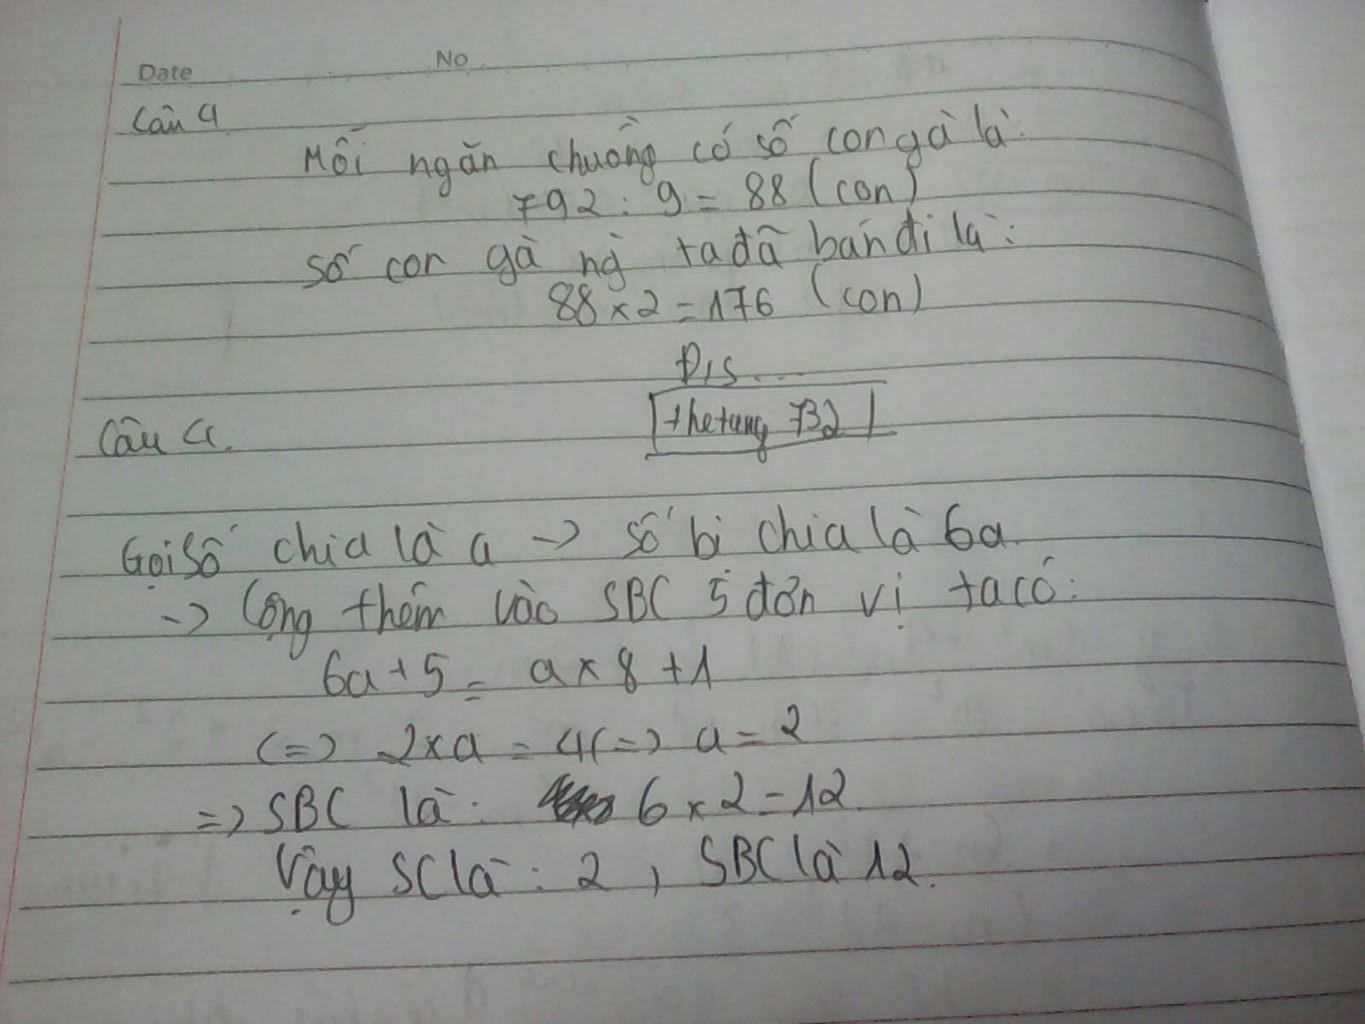 Date No
Câu 4
Mỗi ngăn chuồng có số con gà là:
792 : 9 = 88 (con)
Số con gà ng ta đã bán đi là:
88 x 2 = 176 (con)
Đ/S....
thetung 732
Câu 4.
Gọi số chia là a -> số bị chia là 6a.
-> Cộng thêm vào SBC 5 đơn vị ta có:
6a + 5 = a x 8 + 1
<=> 2 x a = 4 <=> a = 2
=> SBC là: 6 x 2 = 12.
Vậy SC là: 2, SBC là 12.